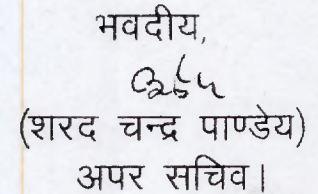 भवदीय,
(शरद चन्द्र पाण्डेय)
अपर सचिव।